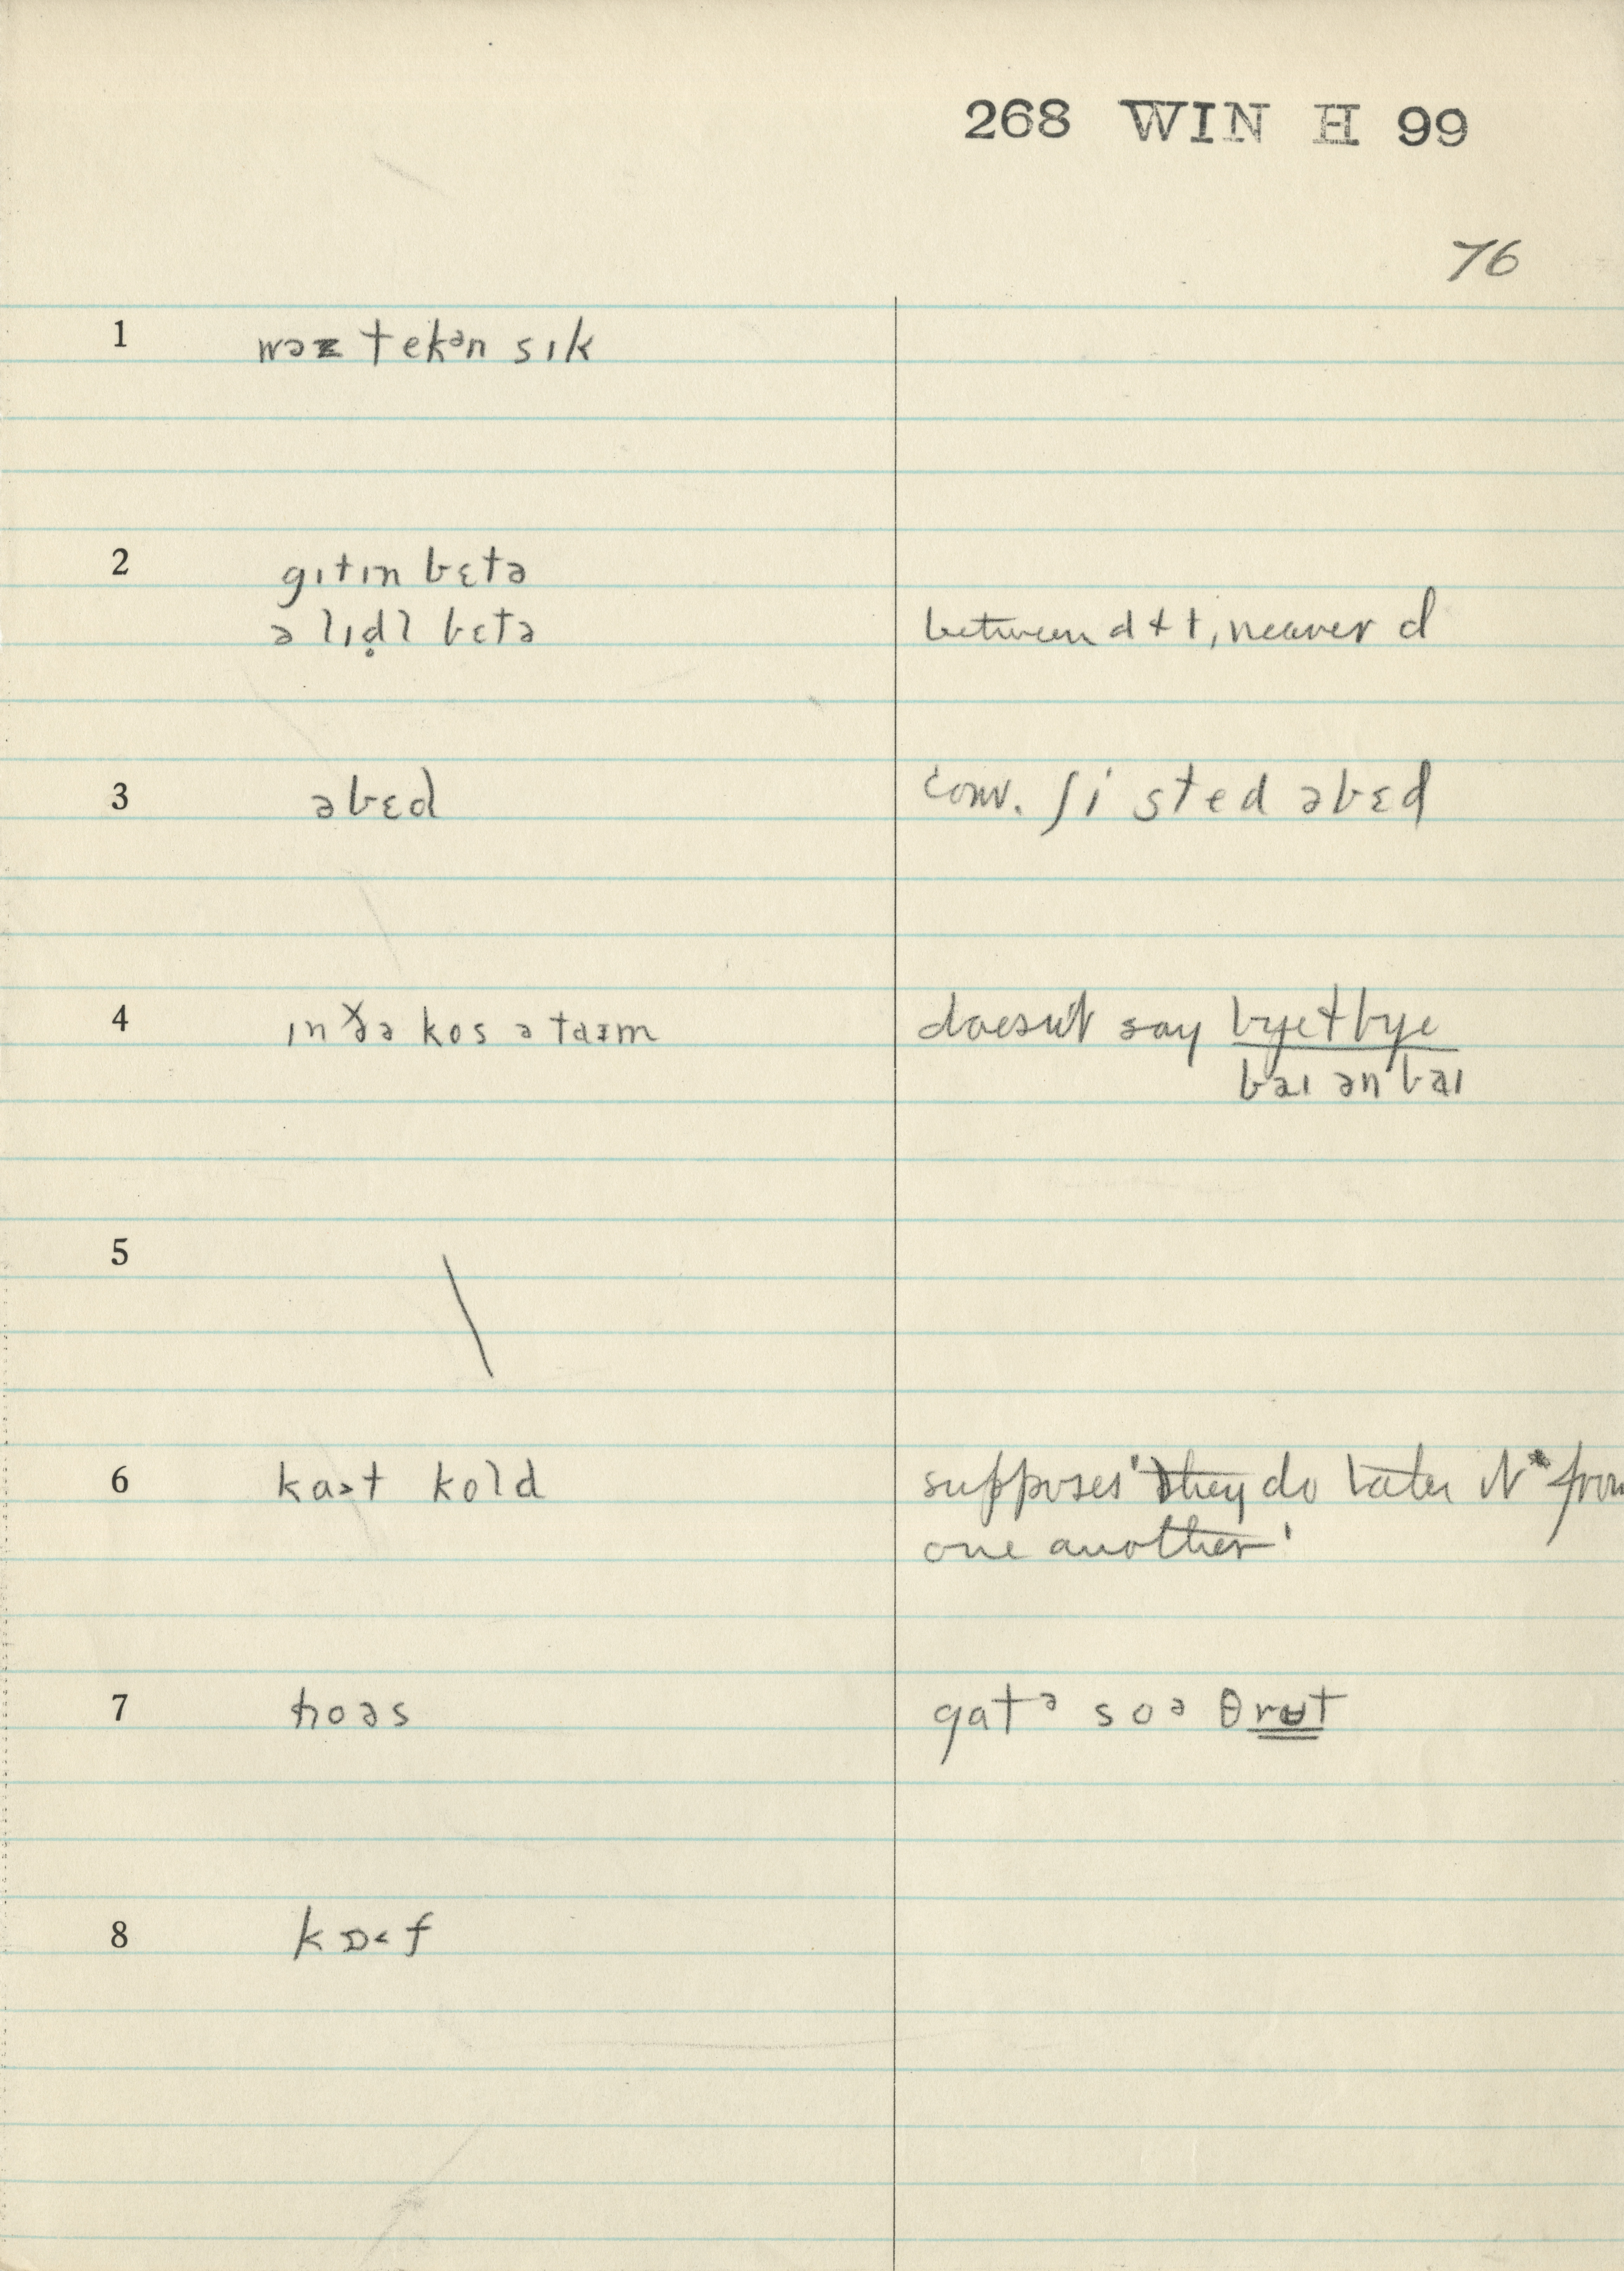 268 WIN H 99
76
1 wəz tekᵊn sɪk
2 gɪtɪn bɛtə
ə lɪḍl bɛtə between d + t, nearer d
3 əbɛd conv. ʃi sted əbɛd
4 ɪn ðə kos ə taɪm doesn't say bye + bye
baɪ ən baɪ
5
6 kaət kold supposes 'they do take it from
one another'
7 hoəs gatᵊ soə θrʉt
8 kɒ˂f